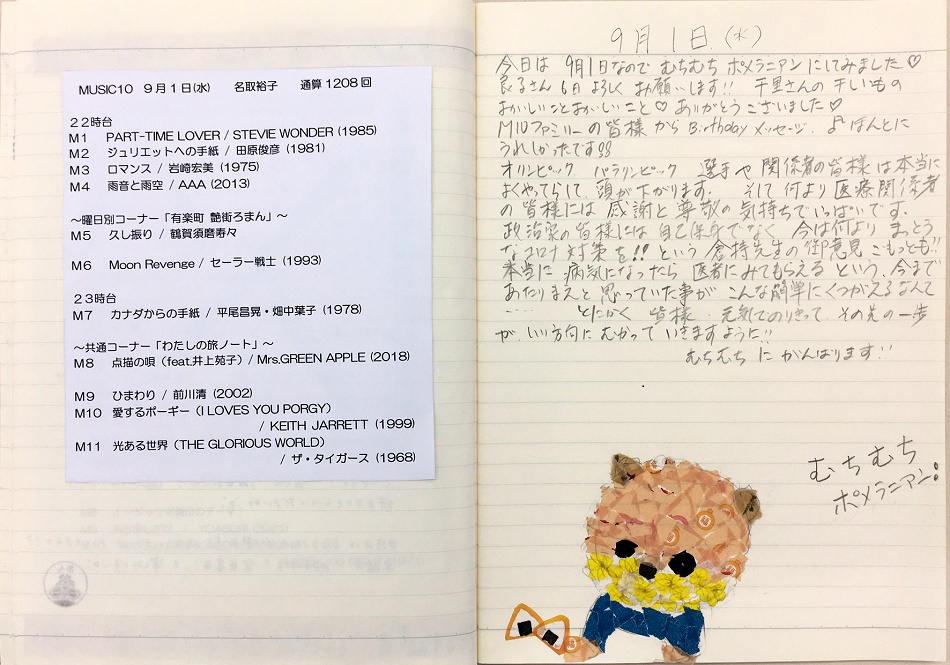 MUSIC10 9月1日(水) 名取裕子 通算1208回
22時台
M1 PART-TIME LOVER / STEVIE WONDER (1985)
M2 ジュリエットへの手紙 / 田原俊彦 (1981)
M3 ロマンス / 岩崎宏美 (1975)
M4 雨音と雨空 / AAA (2013)
～曜日別コーナー「有楽町 艶街ろまん」～
M5 久し振り / 鶴賀須磨寿々
M6 Moon Revenge / セーラー戦士 (1993)
23時台
M7 カナダからの手紙 / 平尾昌晃・畑中葉子 (1978)
～共通コーナー「わたしの旅ノート」～
M8 点描の唄（feat.井上苑子）/ Mrs.GREEN APPLE (2018)
M9 ひまわり / 前川清 (2002)
M10 愛するポーギー（I LOVES YOU PORGY）
/ KEITH JARRETT (1999)
M11 光ある世界（THE GLORIOUS WORLD）
/ ザ・タイガース (1968)
9月1日(水)
今日は 9月1日なので むちむち ポメラニアン にしてみました♡
良子さん 6日 よろしく お願いします!! 千里さんの 干しいもの
おいしいことおいしいこと♡ ありがとうございました♡
M10ファミリーの皆様から Birthday メッセージ、♪ ほんとに
うれしかったです!!
オリンピック パラリンピック 選手や関係者の皆様は本当に
よくやってらして、頭が下がります. そして何より 医療関係者
の皆様には 感謝と尊敬の気持ちでいっぱいです.
政治家の皆様には 自己保身でなく 今は何より まっとう
なコロナ対策を!! という 倉持先生の御意見 ごもっとも!!
本当に 病気になったら 医者にみてもらえる という、今まで
あたりまえと 思っていた事が こんな簡単にくつがえるなんて
…… とにかく 皆様. 元気でのりきって その先の一歩
が いい方向に むかって いきますように!!
むちむち に がんばります!!
むちむち
ポメラニアン